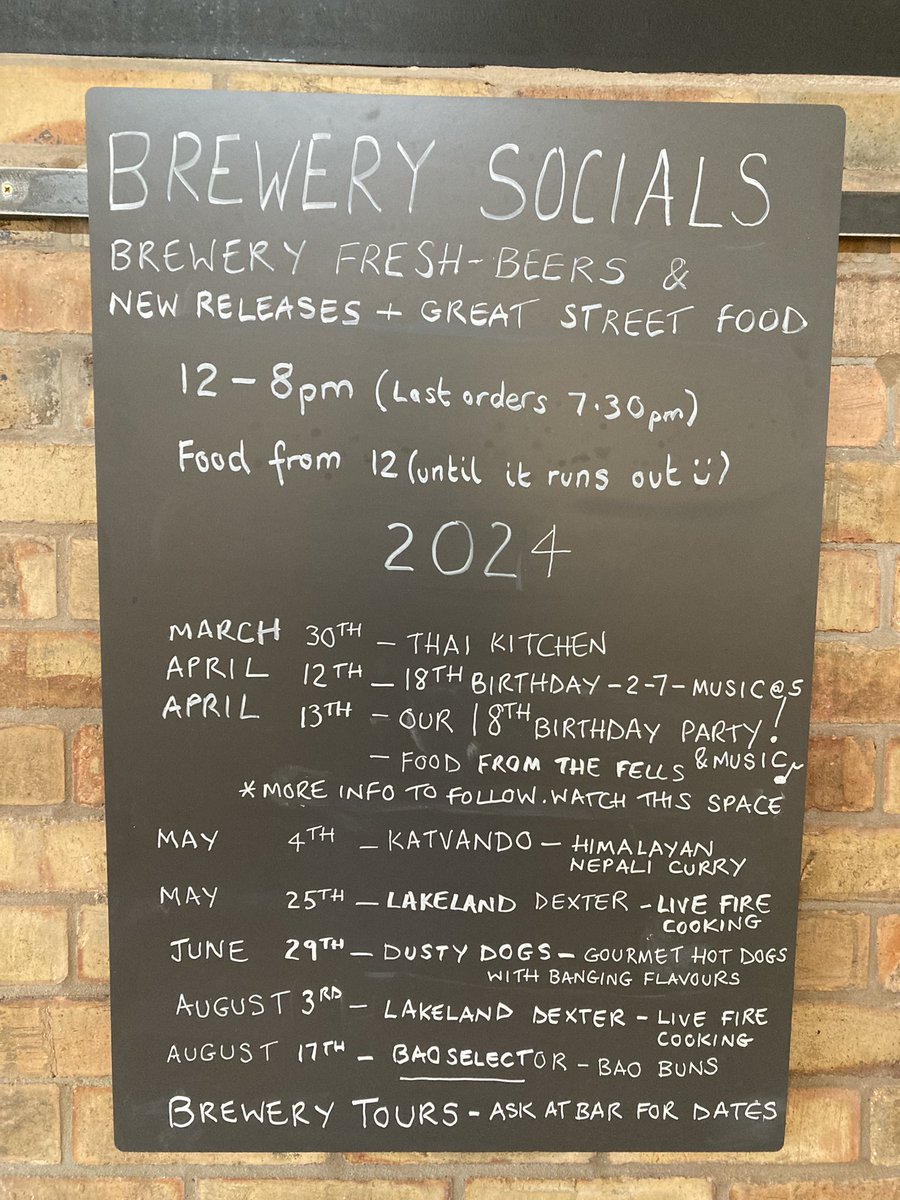 BREWERY SOCIALS
BREWERY FRESH-BEERS &
NEW RELEASES + GREAT STREET FOOD
12 - 8pm (Last orders 7.30pm)
Food from 12 (until it runs out ü)
2024
MARCH 30TH - THAI KITCHEN
APRIL 12TH - 18TH BIRTHDAY - 2-7 - MUSIC @ 5
APRIL 13TH - OUR 18TH BIRTHDAY PARTY!
- FOOD FROM THE FELLS & MUSIC ♪
*MORE INFO TO FOLLOW. WATCH THIS SPACE
MAY 4TH - KATVANDO - HIMALAYAN
NEPALI CURRY
MAY 25TH - LAKELAND DEXTER - LIVE FIRE
COOKING
JUNE 29TH - DUSTY DOGS - GOURMET HOT DOGS
WITH BANGING FLAVOURS
AUGUST 3RD - LAKELAND DEXTER - LIVE FIRE
COOKING
AUGUST 17TH - BAO SELECTOR - BAO BUNS
BREWERY TOURS - ASK AT BAR FOR DATES